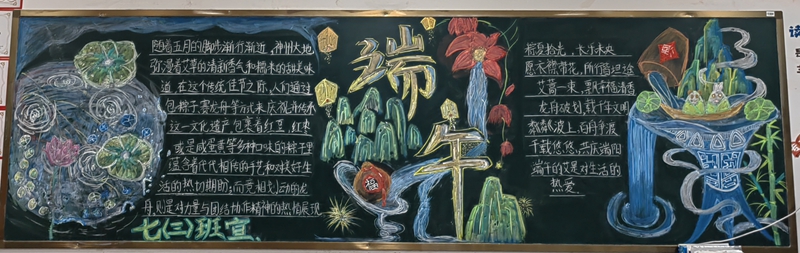 随着五月的脚步渐行渐近，神州大地
弥漫着艾草的清新香气和糯米的甜美味
道，在这个传统佳节之际，人们通过
包粽子赛龙舟等方式来庆祝并传承
这一文化遗产，包裹着红豆、红枣
或是咸蛋黄等多种口味的粽子里
蕴含着代代相传的手艺和对美好生
活的热切期盼；而竞相划动的龙
舟，则是对力量与团结协作精神的热情展现
七(三)班宣
端
午
福
愿衣襟带花，所行皆坦途
艾蒿一束，飘轩苑清香
龙舟破划，载千年文明
粼粼波上，百舟争渡
千载悠悠，共庆端阳
端午的艾是对生活的
热爱。